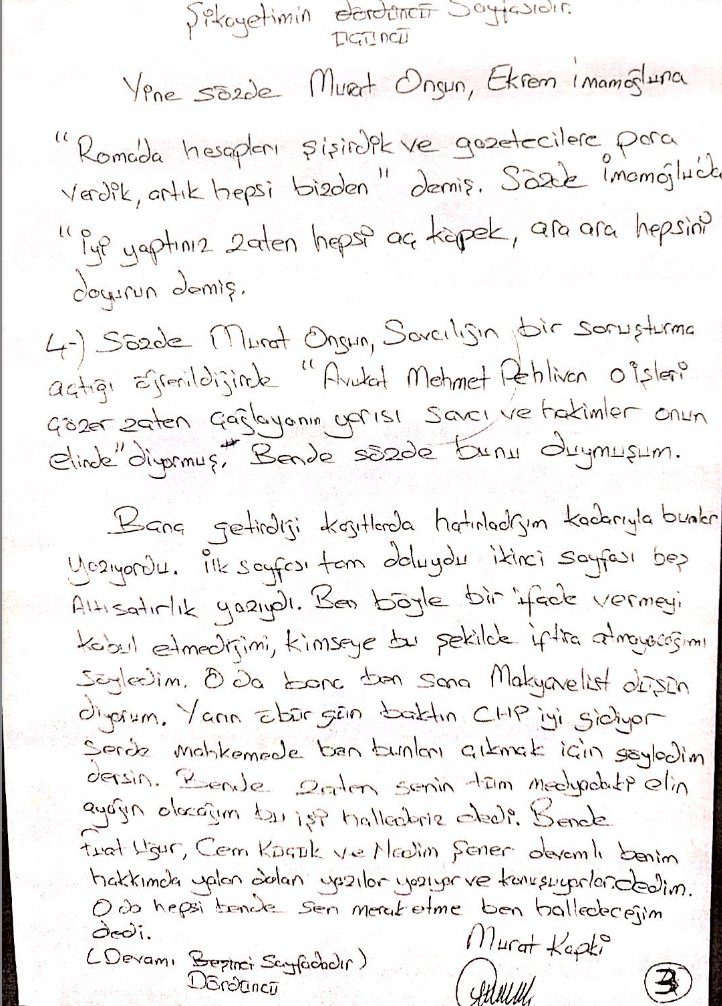 Şikayetimin dördüncü Sayfasıdır.
ÜÇÜNCÜ
Yine sözde Murat Ongun, Ekrem İmamoğluna
"Roma'da hesapları şişirdik ve gazetecilere para
verdik, artık hepsi bizden" demiş. Sözde İmamoğlu'da
"İyi yaptınız zaten hepsi aç köpek, ara ara hepsini
doyurun demiş.
4-) Sözde Murat Ongun, Savcılığın bir soruşturma
açtığı öğrenildiğinde "Avukat Mehmet Pehlivan o işleri
çözer zaten Çağlayanın yarısı savcı ve hakimler onun
elinde" diyormuş. Bende sözde bunu duymuşum.
Bana getirdiği kağıtlarda hatırladığım kadarıyla bunlar
yazıyordu. İlk sayfası tam doluydu ikinci sayfası beş
Altı satırlık yazıydı. Ben böyle bir ifade vermeyi
kabul etmediğimi, kimseye bu şekilde iftira atmayacağımı
söyledim. O da bana ben sana Makyavelist düşün
diyorum. Yarın öbür gün baktın CHP iyi gidiyor
sende mahkemede ben bunları çıkmak için söyledim
dersin. Bende zaten senin tüm medyadaki elin
ayağın olacağım bu işi hallederiz dedi. Bende
Fuat Uğur, Cem Küçük ve Nedim Şener devamlı benim
hakkımda yalan dolan yazılar yazıyor ve konuşuyorlar dedim.
O da hepsi bende sen merak etme ben halledeceğim
dedi.
Murat Kapki
(Devamı Beşinci Sayfadadır)
Dördüncü
3